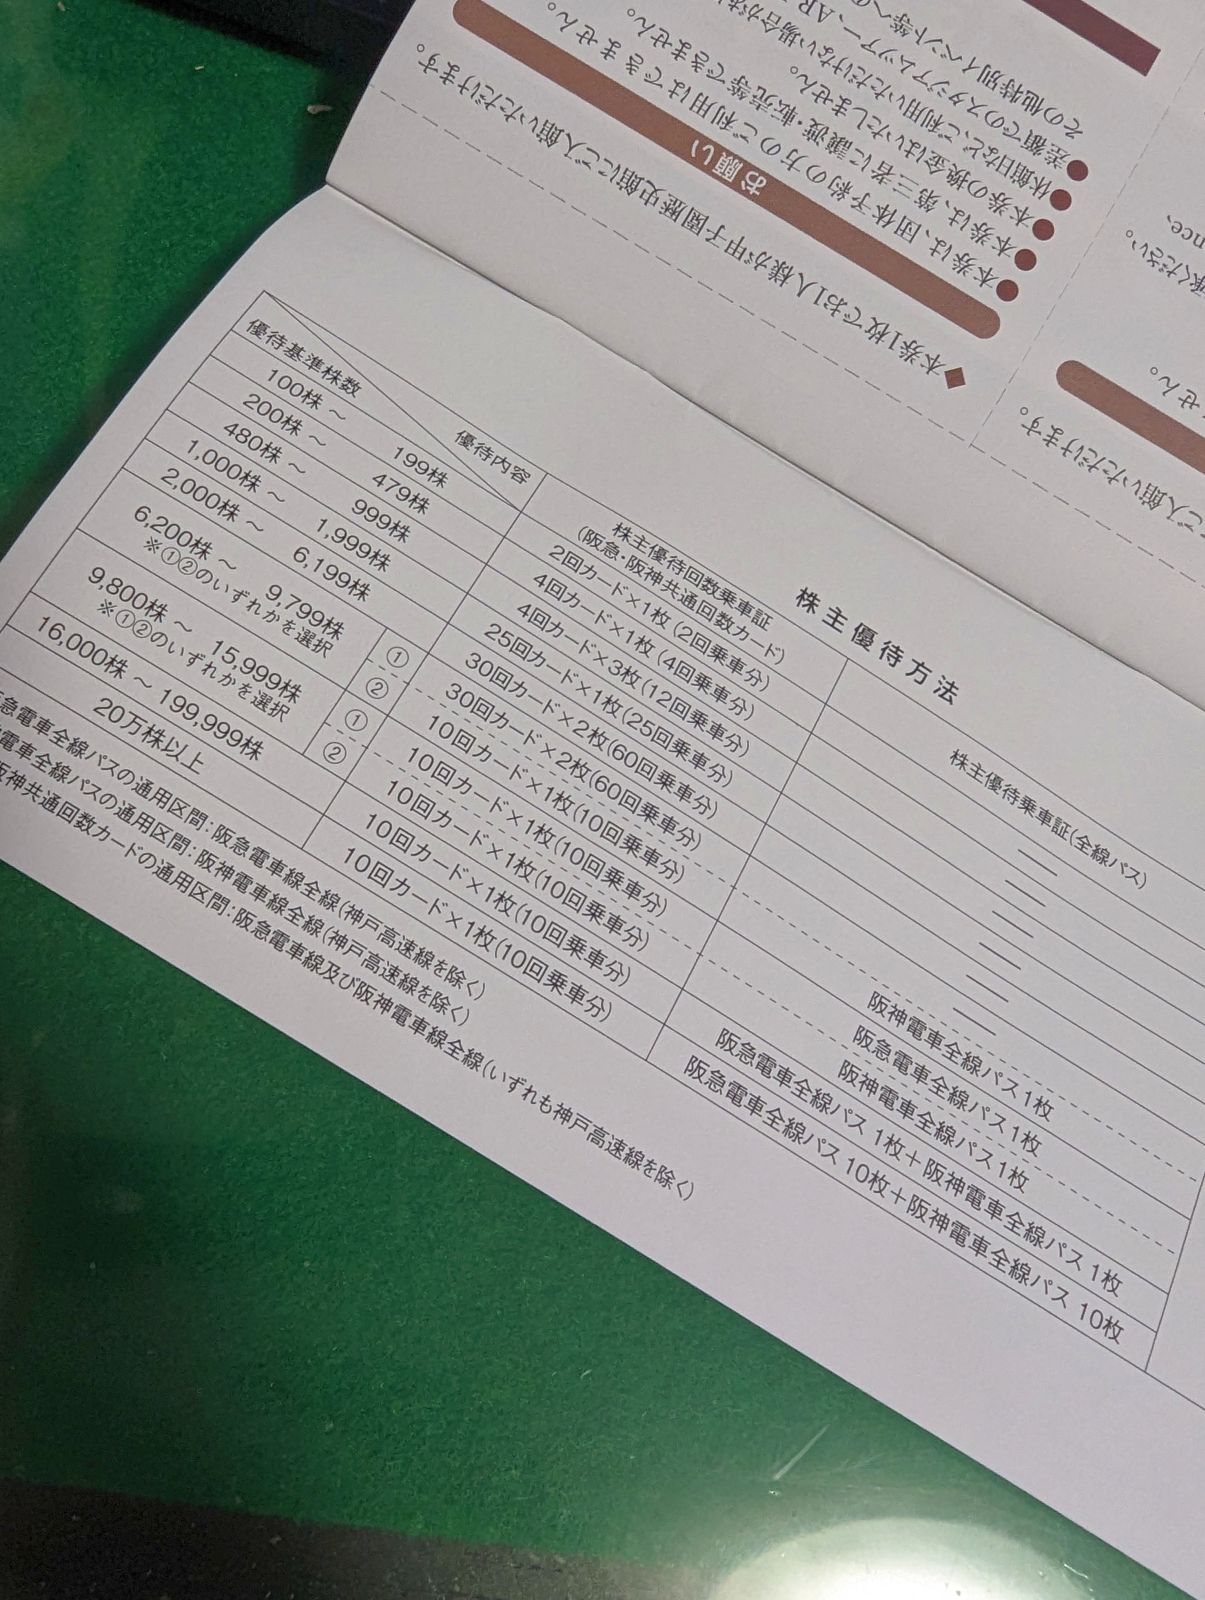 株主優待方法
優待内容
優待基準株数
株主優待回数乗車証
(阪急・阪神共通回数カード)
株主優待乗車証(全線パス)
100株 ～ 199株 2回カード×1枚(2回乗車分) ―
200株 ～ 479株 4回カード×1枚(4回乗車分) ―
480株 ～ 999株 4回カード×3枚(12回乗車分) ―
1,000株 ～ 1,999株 25回カード×1枚(25回乗車分) ―
2,000株 ～ 6,199株 30回カード×2枚(60回乗車分) ―
6,200株 ～ 9,799株
※①②のいずれかを選択
① 30回カード×2枚(60回乗車分) ―
② 10回カード×1枚(10回乗車分) 阪神電車全線パス1枚
9,800株 ～ 15,999株
※①②のいずれかを選択
① 10回カード×1枚(10回乗車分) 阪急電車全線パス1枚
② 10回カード×1枚(10回乗車分) 阪神電車全線パス1枚
16,000株 ～ 199,999株 10回カード×1枚(10回乗車分) 阪急電車全線パス 1枚＋阪神電車全線パス 1枚
20万株以上 10回カード×1枚(10回乗車分) 阪急電車全線パス 10枚＋阪神電車全線パス 10枚
急電車全線パスの通用区間：阪急電車線全線(神戸高速線を除く)
電車全線パスの通用区間：阪神電車線全線(神戸高速線を除く)
阪神共通回数カードの通用区間：阪急電車線及び阪神電車線全線(いずれも神戸高速線を除く)
◆本券1枚でお1人様が甲子園歴史館にご入館いただけます。
お願い
●本券は、団体予約の方のご利用はできません。
●本券は、第三者に譲渡・転売等できません。
●本券の換金はいたしません。
●休館日など、ご利用いただけない場合が
●差額でのスタジアムツアー、AR
その他特別イベント等への
ご入館いただけます。
せん。
承ください。
nce、